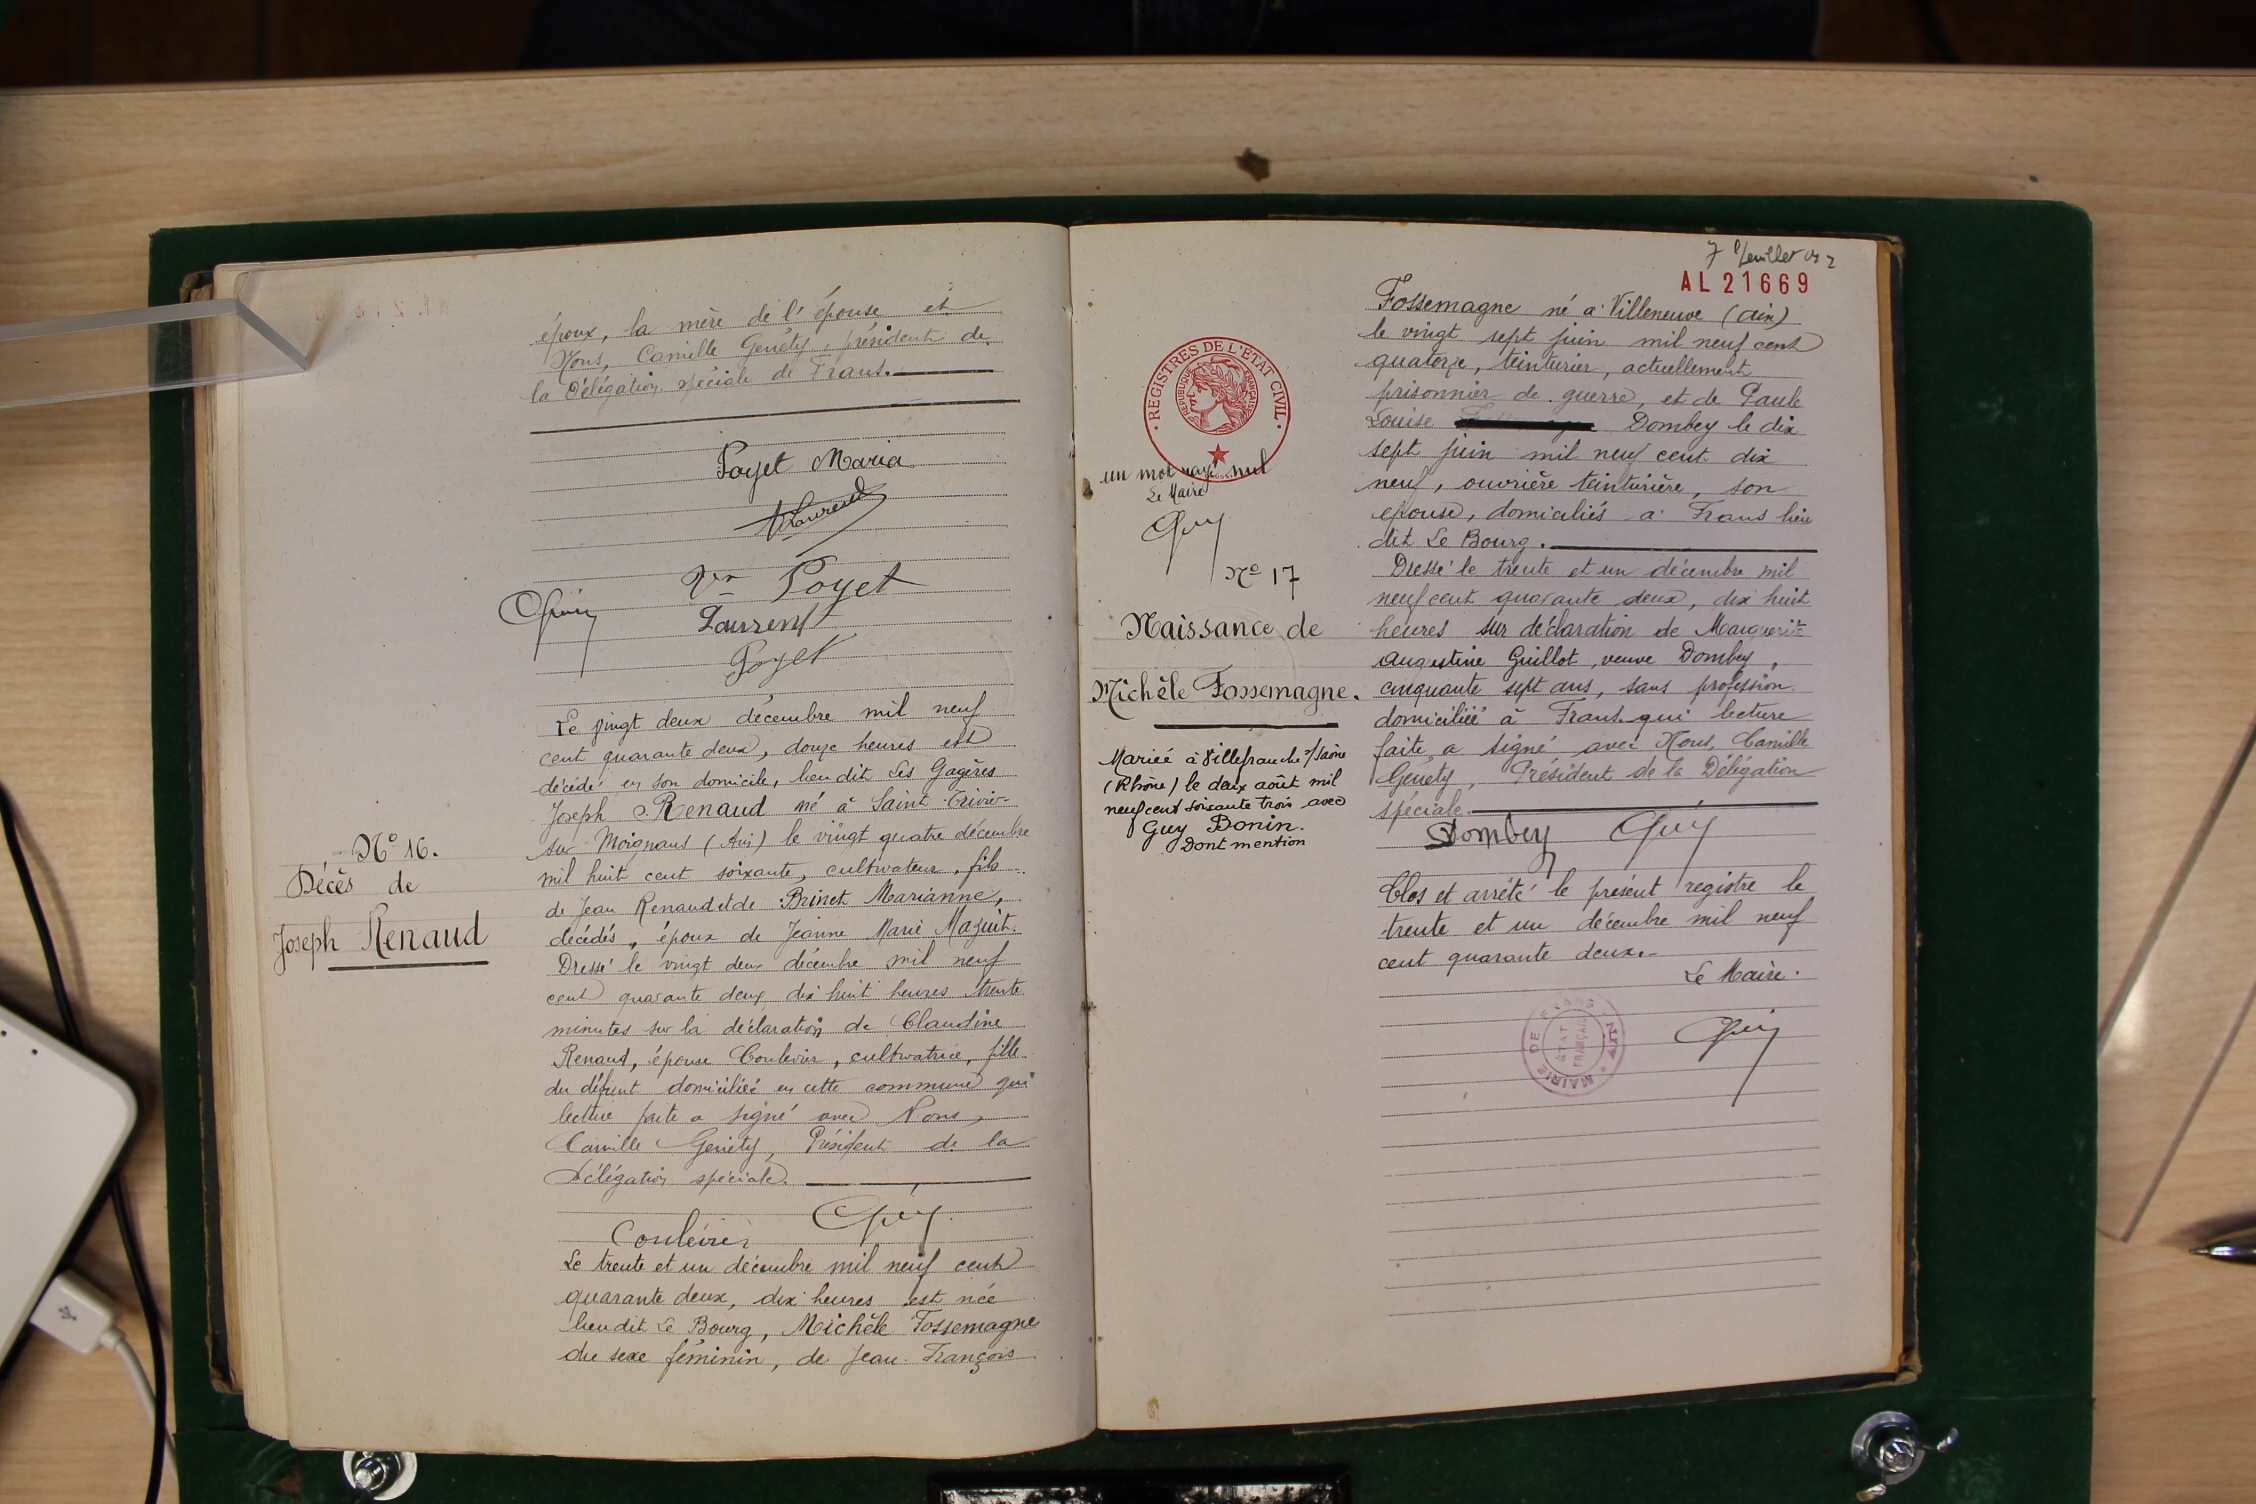 époux, la mère de l'épouse et
Nous, Camille Genéty, président de
la Délégation spéciale de Frans.
Poyet Maria
Laurent
Vve Poyet
Laurent
Poyet
Le vingt deux décembre mil neuf
cent quarante deux, douze heures est
décédé en son domicile, lieu dit Les Gagères
Joseph Renaud né à Saint-Trivier-
sur Moignans (Ain) le vingt quatre décembre
mil huit cent soixante, cultivateur, fils
de Jean Renaud et de Brinet Marianne,
décédés, époux de Jeanne Marie
Dressé le vingt deux décembre mil neuf
cent quarante deux dix huit heures trente
minutes sur la déclaration de Claudine
Renaud, épouse Coulevier, cultivatrice, fille
du défunt domiciliée en cette commune qui
lecture faite a signé avec Nous,
Camille Genéty, Président de la
Délégation spéciale.
N° 16.
Décès de
Joseph Renaud
Le trente et un décembre mil neuf cent
quarante deux, dix heures est née
lieu dit Le Bourg, Michèle Fossemagne
du sexe féminin, de Jean François
7 feuillet
AL 21669
Fossemagne né à Villeneuve (Ain)
le vingt sept juin mil neuf cent
quatorze, teinturier, actuellement
prisonnier de guerre, et de Paule
Louise Dombey le dix
sept juin mil neuf cent dix
neuf, ouvrière teinturière, son
épouse, domiciliés à Frans lieu
dit Le Bourg.
Dressé le trente et un décembre mil
neuf cent quarante deux, dix huit
heures sur déclaration de Marguerite
Augustine Guillot, veuve Dombey,
cinquante sept ans, sans profession
domiciliée à Frans qui lecture
faite, a signé avec Nous, Camille
Genéty, Président de la Délégation
spéciale
Dombey
Clos et arrêté le présent registre le
trente et un décembre mil neuf
cent quarante deux.-
Le Maire.
MAIRIE DE FRANS (AIN)
ETAT
FRANÇAIS
REGISTRES DE L'ETAT CIVIL
REPUBLIQUE FRANÇAISE
un mot rayé nul
Le Maire
N° 17
Naissance de
Michèle Fossemagne.
Mariée à Villefranche s/Saône
(Rhône) le deux août mil
neuf cent soixante trois avec
Guy Bonin.
Dont mention